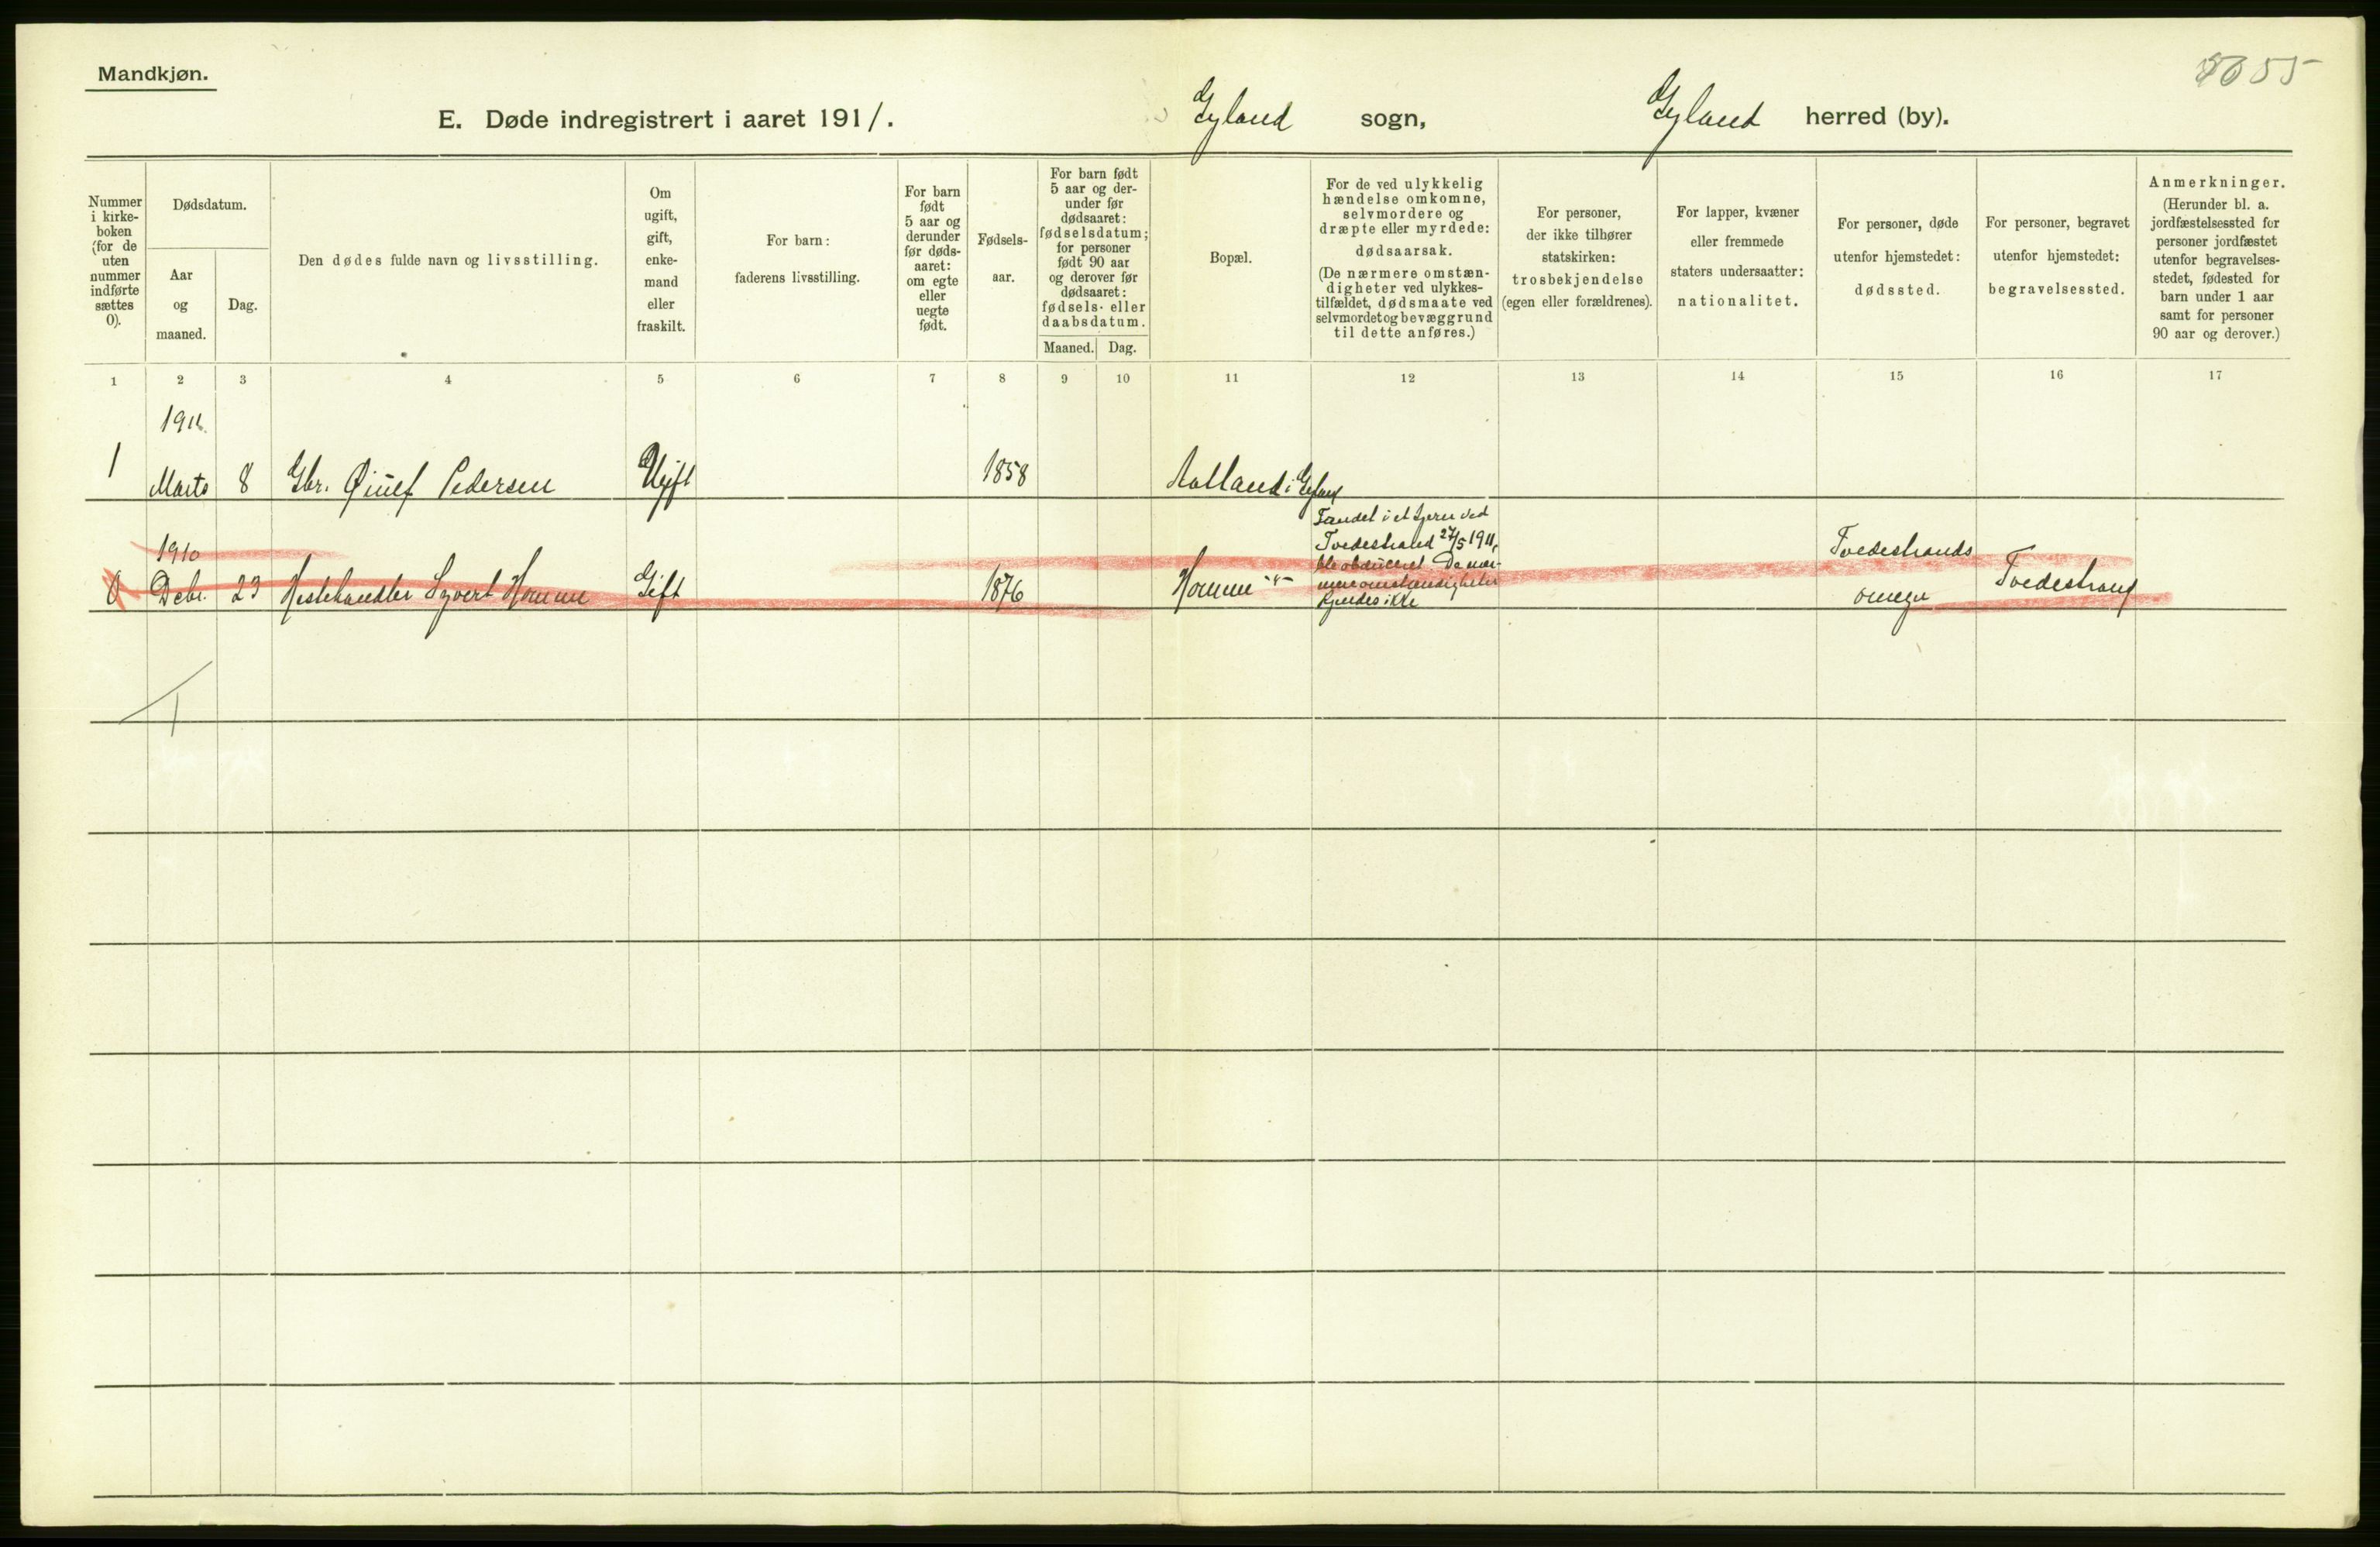 Mandkjøn.
E. Døde indregistrert i aaret 1911.
Gyland sogn,
Gyland herred (by).
Nummer
i kirke-
boken
(for de
uten
nummer
indførte
sættes
0).
Dødsdatum.
Aar
og
maaned.
Dag.
Den dødes fulde navn og livsstilling.
Om
ugift,
gift,
enke-
mand
eller
fraskilt.
For barn:
faderens livsstilling.
For barn
født
5 aar og
derunder
før døds-
aaret:
om egte
eller
uegte
født.
Fødsels-
aar.
For barn født
5 aar og der-
under før
dødsaaret:
fødselsdatum;
for personer
født 90 aar
og derover før
dødsaaret:
fødsels- eller
daabsdatum.
Maaned. Dag.
Bopæl.
For de ved ulykkelig
hændelse omkomne,
selvmordere og
dræpte eller myrdede:
dødsaarsak.
(De nærmere omstæn-
digheter ved ulykkes-
tilfældet, dødsmaate ved
selvmordet og bevæggrund
til dette anføres.)
For personer,
der ikke tilhører
statskirken:
trosbekjendelse
(egen eller forældrenes).
For lapper, kvæner
eller fremmede
staters undersaatter:
nationalitet.
For personer, døde
utenfor hjemstedet:
dødssted.
For personer, begravet
utenfor hjemstedet:
begravelsessted.
Anmerkninger.
(Herunder bl. a.
jordfæstelsessted for
personer jordfæstet
utenfor begravelses-
stedet, fødested for
barn under 1 aar
samt for personer
90 aar og derover.)
1 2 3 4 5 6 7 8 9 10 11 12 13 14 15 16 17
1911.
1 Marts 8 Gbr. Pedersen Ugift 1858 i Gyland
1910
0 Debr. 23 Hestehandler Syvert Homme Gift 1876 Homme -"-
Fundet i et tjern ved
Tvedestrand 27/5 1911,
blev obduceret. De nær-
mere omstændigheter
kjendes ikke
Tvedestrands
omegn
Tvedestrand